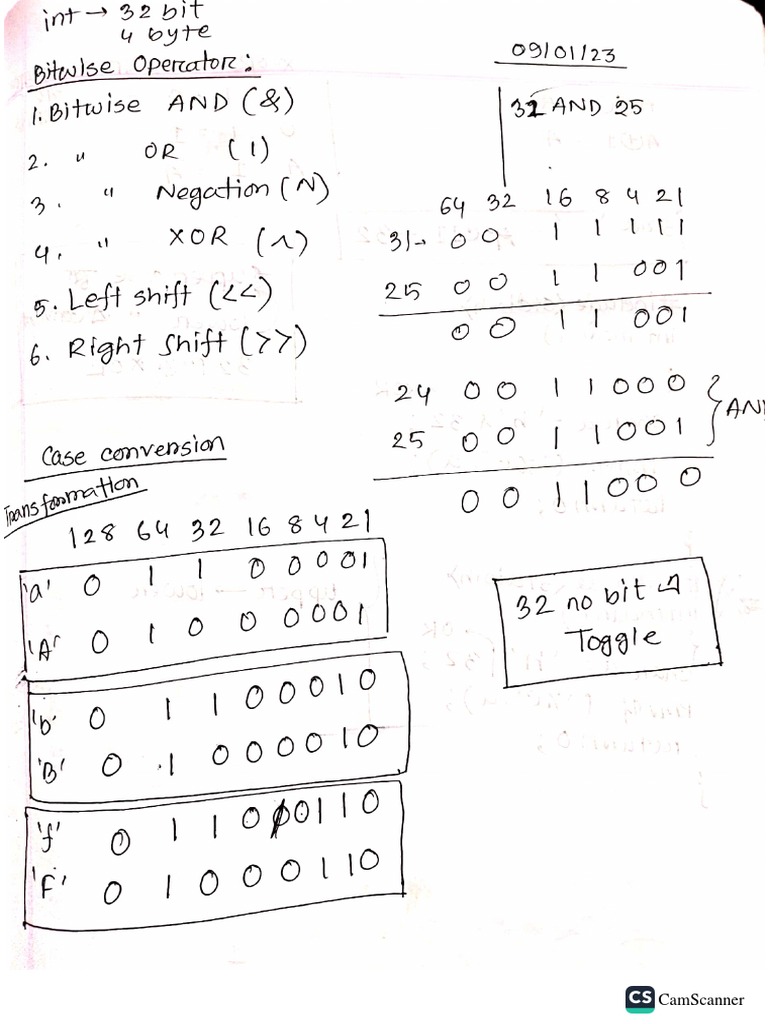 int → 32 bit
4 byte
Bitwise Operator:
1. Bitwise AND (&)
2. " OR (|)
3. " Negation (~)
4. " XOR (^)
5. Left shift (<<)
6. Right Shift (>>)
09/01/23
31 AND 25
64 32 16 8 4 2 1
31→ 0 0 1 1 1 1 1
25 0 0 1 1 0 0 1
0 0 1 1 0 0 1
24 0 0 1 1 0 0 0
25 0 0 1 1 0 0 1
} AND
0 0 1 1 0 0 0
Case conversion
Transformation
128 64 32 16 8 4 2 1
'a' 0 1 1 0 0 0 0 1
'A' 0 1 0 0 0 0 0 1
'b' 0 1 1 0 0 0 1 0
'B' 0 1 0 0 0 0 1 0
'f' 0 1 1 0 0 1 1 0
'F' 0 1 0 0 0 1 1 0
32 no bit
Toggle
CS CamScanner